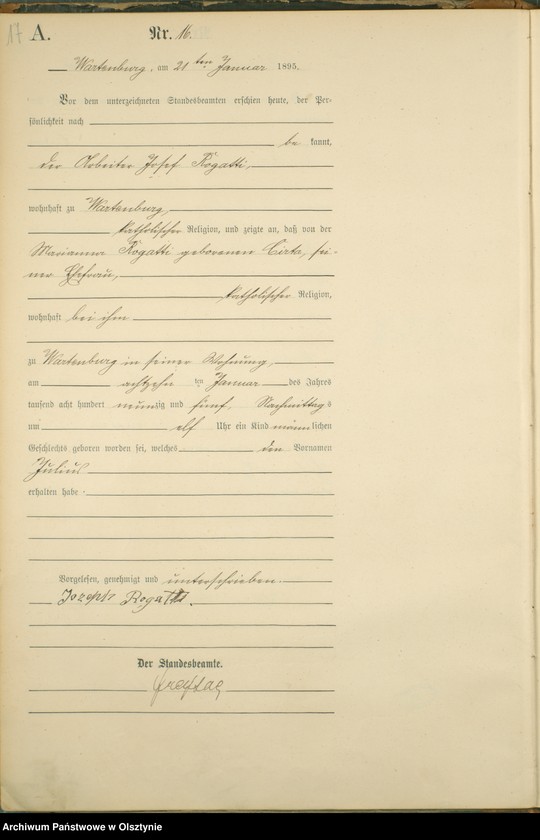 17 A. Nr. 16.
Wartenburg, am 21ten Januar 1895.
Vor dem unterzeichneten Standesbeamten erschien heute, der Per-
sönlichkeit nach
be kannt,
der Arbeiter Josef Rogatti,
wohnhaft zu Wartenburg,
katholischer Religion, und zeigte an, daß von der
Marianna Rogatti geborenen Cirta, sei-
ner Ehefrau,
katholischer Religion,
wohnhaft bei ihm
zu Wartenburg in seiner Wohnung,
am achtzehn ten Januar des Jahres
tausend acht hundert neunzig und fünf, Nachmittags
um elf Uhr ein Kind männlichen
Geschlechts geboren worden sei, welches den Vornamen
Julius
erhalten habe.
Vorgelesen, genehmigt und unterschrieben.
Jozeph Rogatti.
Der Standesbeamte.
Freytag
Archiwum Państwowe w Olsztynie